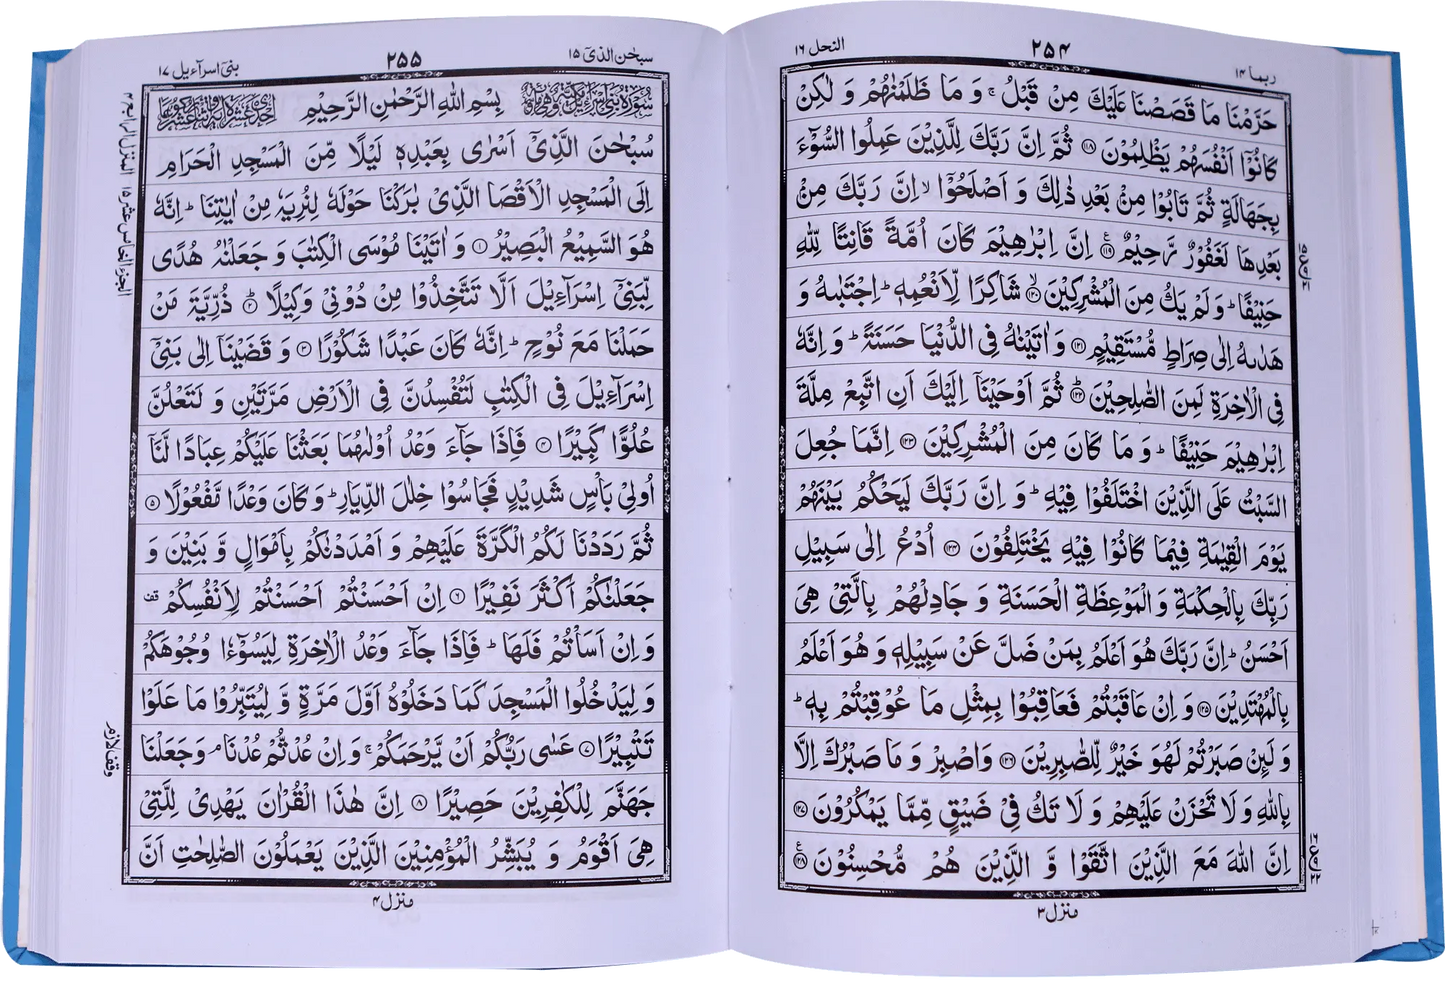 ربما ١٤
٢٥٤
النحل ١٦
حَرَّمْنَا مَا قَصَصْنَا عَلَيْكَ مِنْ قَبْلُ ۚ وَ مَا ظَلَمْنٰهُمْ وَ لٰكِنْ
كَانُوْۤا اَنْفُسَهُمْ يَظْلِمُوْنَ ﴿۱۱۸﴾ ثُمَّ اِنَّ رَبَّكَ لِلَّذِيْنَ عَمِلُوا السُّوْٓءَ
بِجَهَالَةٍ ثُمَّ تَابُوْا مِنْۢ بَعْدِ ذٰلِكَ وَ اَصْلَحُوْۤا ۙ اِنَّ رَبَّكَ مِنْۢ
بَعْدِهَا لَغَفُوْرٌ رَّحِيْمٌ ﴿۱۱۹﴾ اِنَّ اِبْرٰهِيْمَ كَانَ اُمَّةً قَانِتًا لِّلّٰهِ
حَنِيْفًا ؕ وَ لَمْ يَكُ مِنَ الْمُشْرِكِيْنَ ﴿۱۲۰﴾ۙ شَاكِرًا لِّاَنْعُمِهٖ ؕ اِجْتَبٰىهُ وَ
هَدٰىهُ اِلٰى صِرَاطٍ مُّسْتَقِيْمٍ ﴿۱۲۱﴾ وَ اٰتَيْنٰهُ فِي الدُّنْيَا حَسَنَةً ؕ وَ اِنَّهٗ
فِي الْاٰخِرَةِ لَمِنَ الصّٰلِحِيْنَ ﴿۱۲۲﴾ؕ ثُمَّ اَوْحَيْنَاۤ اِلَيْكَ اَنِ اتَّبِعْ مِلَّةَ
اِبْرٰهِيْمَ حَنِيْفًا ؕ وَ مَا كَانَ مِنَ الْمُشْرِكِيْنَ ﴿۱۲۳﴾ اِنَّمَا جُعِلَ
السَّبْتُ عَلَى الَّذِيْنَ اخْتَلَفُوْا فِيْهِ ؕ وَ اِنَّ رَبَّكَ لَيَحْكُمُ بَيْنَهُمْ
يَوْمَ الْقِيٰمَةِ فِيْمَا كَانُوْا فِيْهِ يَخْتَلِفُوْنَ ﴿۱۲۴﴾ اُدْعُ اِلٰى سَبِيْلِ
رَبِّكَ بِالْحِكْمَةِ وَ الْمَوْعِظَةِ الْحَسَنَةِ وَ جَادِلْهُمْ بِالَّتِيْ هِيَ
اَحْسَنُ ؕ اِنَّ رَبَّكَ هُوَ اَعْلَمُ بِمَنْ ضَلَّ عَنْ سَبِيْلِهٖ وَ هُوَ اَعْلَمُ
بِالْمُهْتَدِيْنَ ﴿۱۲۵﴾ وَ اِنْ عَاقَبْتُمْ فَعَاقِبُوْا بِمِثْلِ مَا عُوْقِبْتُمْ بِهٖ ؕ
وَ لَىِٕنْ صَبَرْتُمْ لَهُوَ خَيْرٌ لِّلصّٰبِرِيْنَ ﴿۱۲۶﴾ وَاصْبِرْ وَ مَا صَبْرُكَ اِلَّا
بِاللّٰهِ وَ لَا تَحْزَنْ عَلَيْهِمْ وَ لَا تَكُ فِيْ ضَيْقٍ مِّمَّا يَمْكُرُوْنَ ﴿۱۲۷﴾
اِنَّ اللّٰهَ مَعَ الَّذِيْنَ اتَّقَوْا وَّ الَّذِيْنَ هُمْ مُّحْسِنُوْنَ ﴿۱۲۸﴾
منزل ٣
سبحٰن الذيٓ ١٥
٢٥٥
بنيٓ اسرآءيل ١٧
بِسْمِ اللّٰهِ الرَّحْمٰنِ الرَّحِيْمِ
سُبْحٰنَ الَّذِيْۤ اَسْرٰى بِعَبْدِهٖ لَيْلًا مِّنَ الْمَسْجِدِ الْحَرَامِ
اِلَى الْمَسْجِدِ الْاَقْصَا الَّذِيْ بٰرَكْنَا حَوْلَهٗ لِنُرِيَهٗ مِنْ اٰيٰتِنَا ؕ اِنَّهٗ
هُوَ السَّمِيْعُ الْبَصِيْرُ ﴿۱﴾ وَ اٰتَيْنَا مُوْسَى الْكِتٰبَ وَ جَعَلْنٰهُ هُدًى
لِّبَنِيْۤ اِسْرَآءِيْلَ اَلَّا تَتَّخِذُوْا مِنْ دُوْنِيْ وَكِيْلًا ﴿۲﴾ؕ ذُرِّيَّةَ مَنْ
حَمَلْنَا مَعَ نُوْحٍ ؕ اِنَّهٗ كَانَ عَبْدًا شَكُوْرًا ﴿۳﴾ وَ قَضَيْنَاۤ اِلٰى بَنِيْۤ
اِسْرَآءِيْلَ فِي الْكِتٰبِ لَتُفْسِدُنَّ فِي الْاَرْضِ مَرَّتَيْنِ وَ لَتَعْلُنَّ
عُلُوًّا كَبِيْرًا ﴿۴﴾ فَاِذَا جَآءَ وَعْدُ اُوْلٰىهُمَا بَعَثْنَا عَلَيْكُمْ عِبَادًا لَّنَاۤ
اُولِيْ بَاْسٍ شَدِيْدٍ فَجَاسُوْا خِلٰلَ الدِّيَارِ ؕ وَ كَانَ وَعْدًا مَّفْعُوْلًا ﴿۵﴾
ثُمَّ رَدَدْنَا لَكُمُ الْكَرَّةَ عَلَيْهِمْ وَ اَمْدَدْنٰكُمْ بِاَمْوَالٍ وَّ بَنِيْنَ وَ
جَعَلْنٰكُمْ اَكْثَرَ نَفِيْرًا ﴿۶﴾ اِنْ اَحْسَنْتُمْ اَحْسَنْتُمْ لِاَنْفُسِكُمْ قف
وَ اِنْ اَسَاْتُمْ فَلَهَا ؕ فَاِذَا جَآءَ وَعْدُ الْاٰخِرَةِ لِيَسُوْٓءٗا وُجُوْهَكُمْ
وَ لِيَدْخُلُوا الْمَسْجِدَ كَمَا دَخَلُوْهُ اَوَّلَ مَرَّةٍ وَّ لِيُتَبِّرُوْا مَا عَلَوْا
تَتْبِيْرًا ﴿۷﴾ عَسٰى رَبُّكُمْ اَنْ يَّرْحَمَكُمْ ۚ وَ اِنْ عُدْتُّمْ عُدْنَا ۘ وَ جَعَلْنَا
جَهَنَّمَ لِلْكٰفِرِيْنَ حَصِيْرًا ﴿۸﴾ اِنَّ هٰذَا الْقُرْاٰنَ يَهْدِيْ لِلَّتِيْ
هِيَ اَقْوَمُ وَ يُبَشِّرُ الْمُؤْمِنِيْنَ الَّذِيْنَ يَعْمَلُوْنَ الصّٰلِحٰتِ اَنَّ
منزل ٤
المنزل الرابع ٤
الجزء الخامس عشر ١٥
وقف لازم